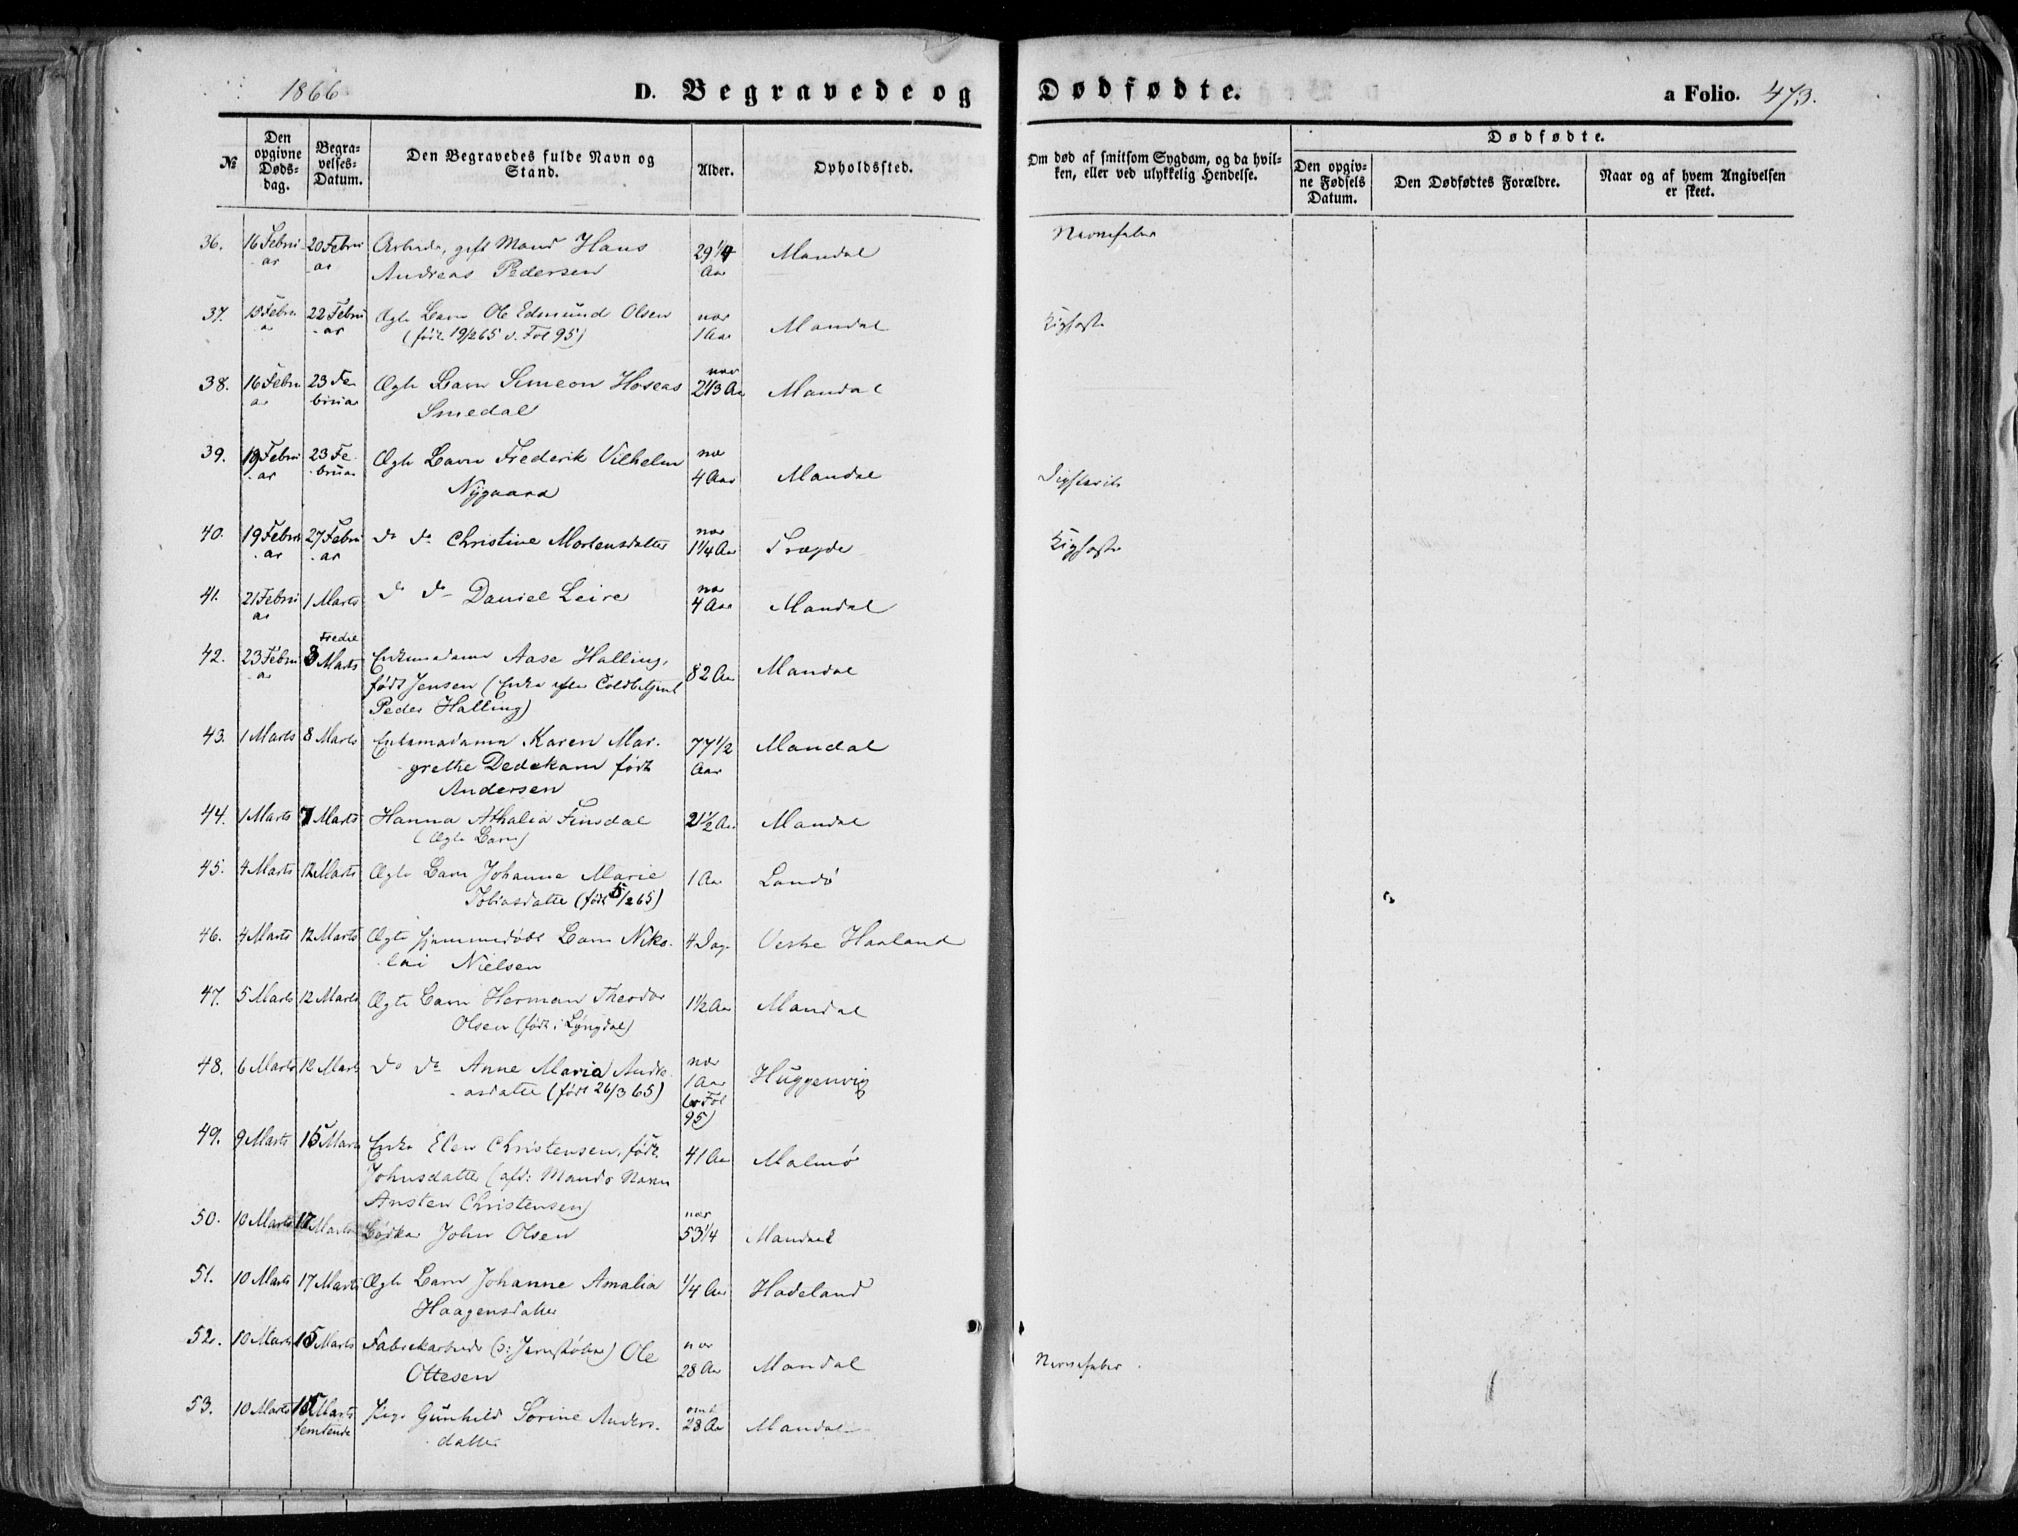 1866
D. Begravede og Dødfødte. a Folio. 473.
№
Den opgivne Døds-dag.
Begra-velses-Datum.
Den Begravedes fulde Navn og Stand.
Alder.
Opholdssted.
Om død af smitsom Sygdom, og da hvil-
ken, eller ved ulykkelig Hendelse.
Dødfødte.
Den opgiv-ne Fødsels Datum.
Den Dødfødtes Forældre.
Naar og af hvem Angivelsen er skeet.
36. 16 Febru 20 Febru Arbeider, gift Mand Hans 29 1/4 Mandal Nervefeber
ar ar Andreas Pedersen Aar
37. 22 Febru Ægte Barn Ole Edmund Olsen nær Mandal
ar (født 19/2 65 v. Fol 95) 1 Aar
38. 16 Febru 23 Fe Ægte Barn Simeon Hoseas nær 2 1/3 Aar Mandal
ar bruar Smedal
39. Febru 23 Fe Ægte Barn Frederik Vilhelm nær Mandal
ar bruar Nygaard 4 Aar
40. 19 Febru 27 Febru do do Christine Mortensdatter nær Trægde
ar ar 1 1/4 Aar
41. 21 Febru 1 Marts do do Daniel Leire nær Mandal
ar 4 Aar
42. 23 Febru Tredie 3 Marts Enkemadame Aase Halling, 82 Aar Mandal
ar født Jensen (Enke efter Toldbetjent
Peder Halling)
43. 1 Marts 8 Marts Enkemadame Karen Mar- 77 1/2 Mandal
grethe Dedekam født Aar
Andersen
44. 1 Marts 7 Marts Hanna Athalia Finsdal 2 1/2 Aar Mandal
(Ægte Barn)
45. 4 Marts 12 Marts Ægte Barn Johanne Marie 1 Aar Landø
Tobiasdatter (født 5/2 65)
46. 4 Marts 12 Marts Ægte hjemmedøbt Barn Niko- 4 Dage Vestre Haaland
lai Nielsen
47. 5 Marts 12 Marts Ægte Barn Herman Theodor 1 1/2 Aar Mandal
Olsen (født i Lyngdal)
48. 6 Marts 12 Marts do do Anne Maria Andre- nær Huggenvig
asdatter (født 26/3 65) 1 Aar
(v Fol
95)
49. 9 Marts 15 Marts Enke Elen Christensen, født 41 Aar Malmø
Johnsdatter (afd: Mands Navn
Ansten Christensen)
50. 10 Marts 17 Marts Bødker John Olsen nær 53 1/4 Mandal
51. 10 Marts 17 Marts Ægte Barn Johanne Amalia 1/4 Aar Hadeland
Haagensdatter
52. 10 Marts 15 Marts Fabrikarbeider (ɔ: Jernstøber) Ole nær Mandal Nervefeber
Ottesen 28 Aar
53. 10 Marts 15 Marts Pige Gunhild Sorine Anders- omt Mandal
femtende datter 28 Aar